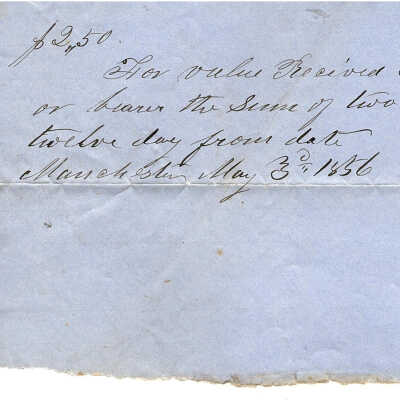 $2,50.
For value Recived
or bearer the Sum of two
twelve day from date
Manchester May 3d, 1856